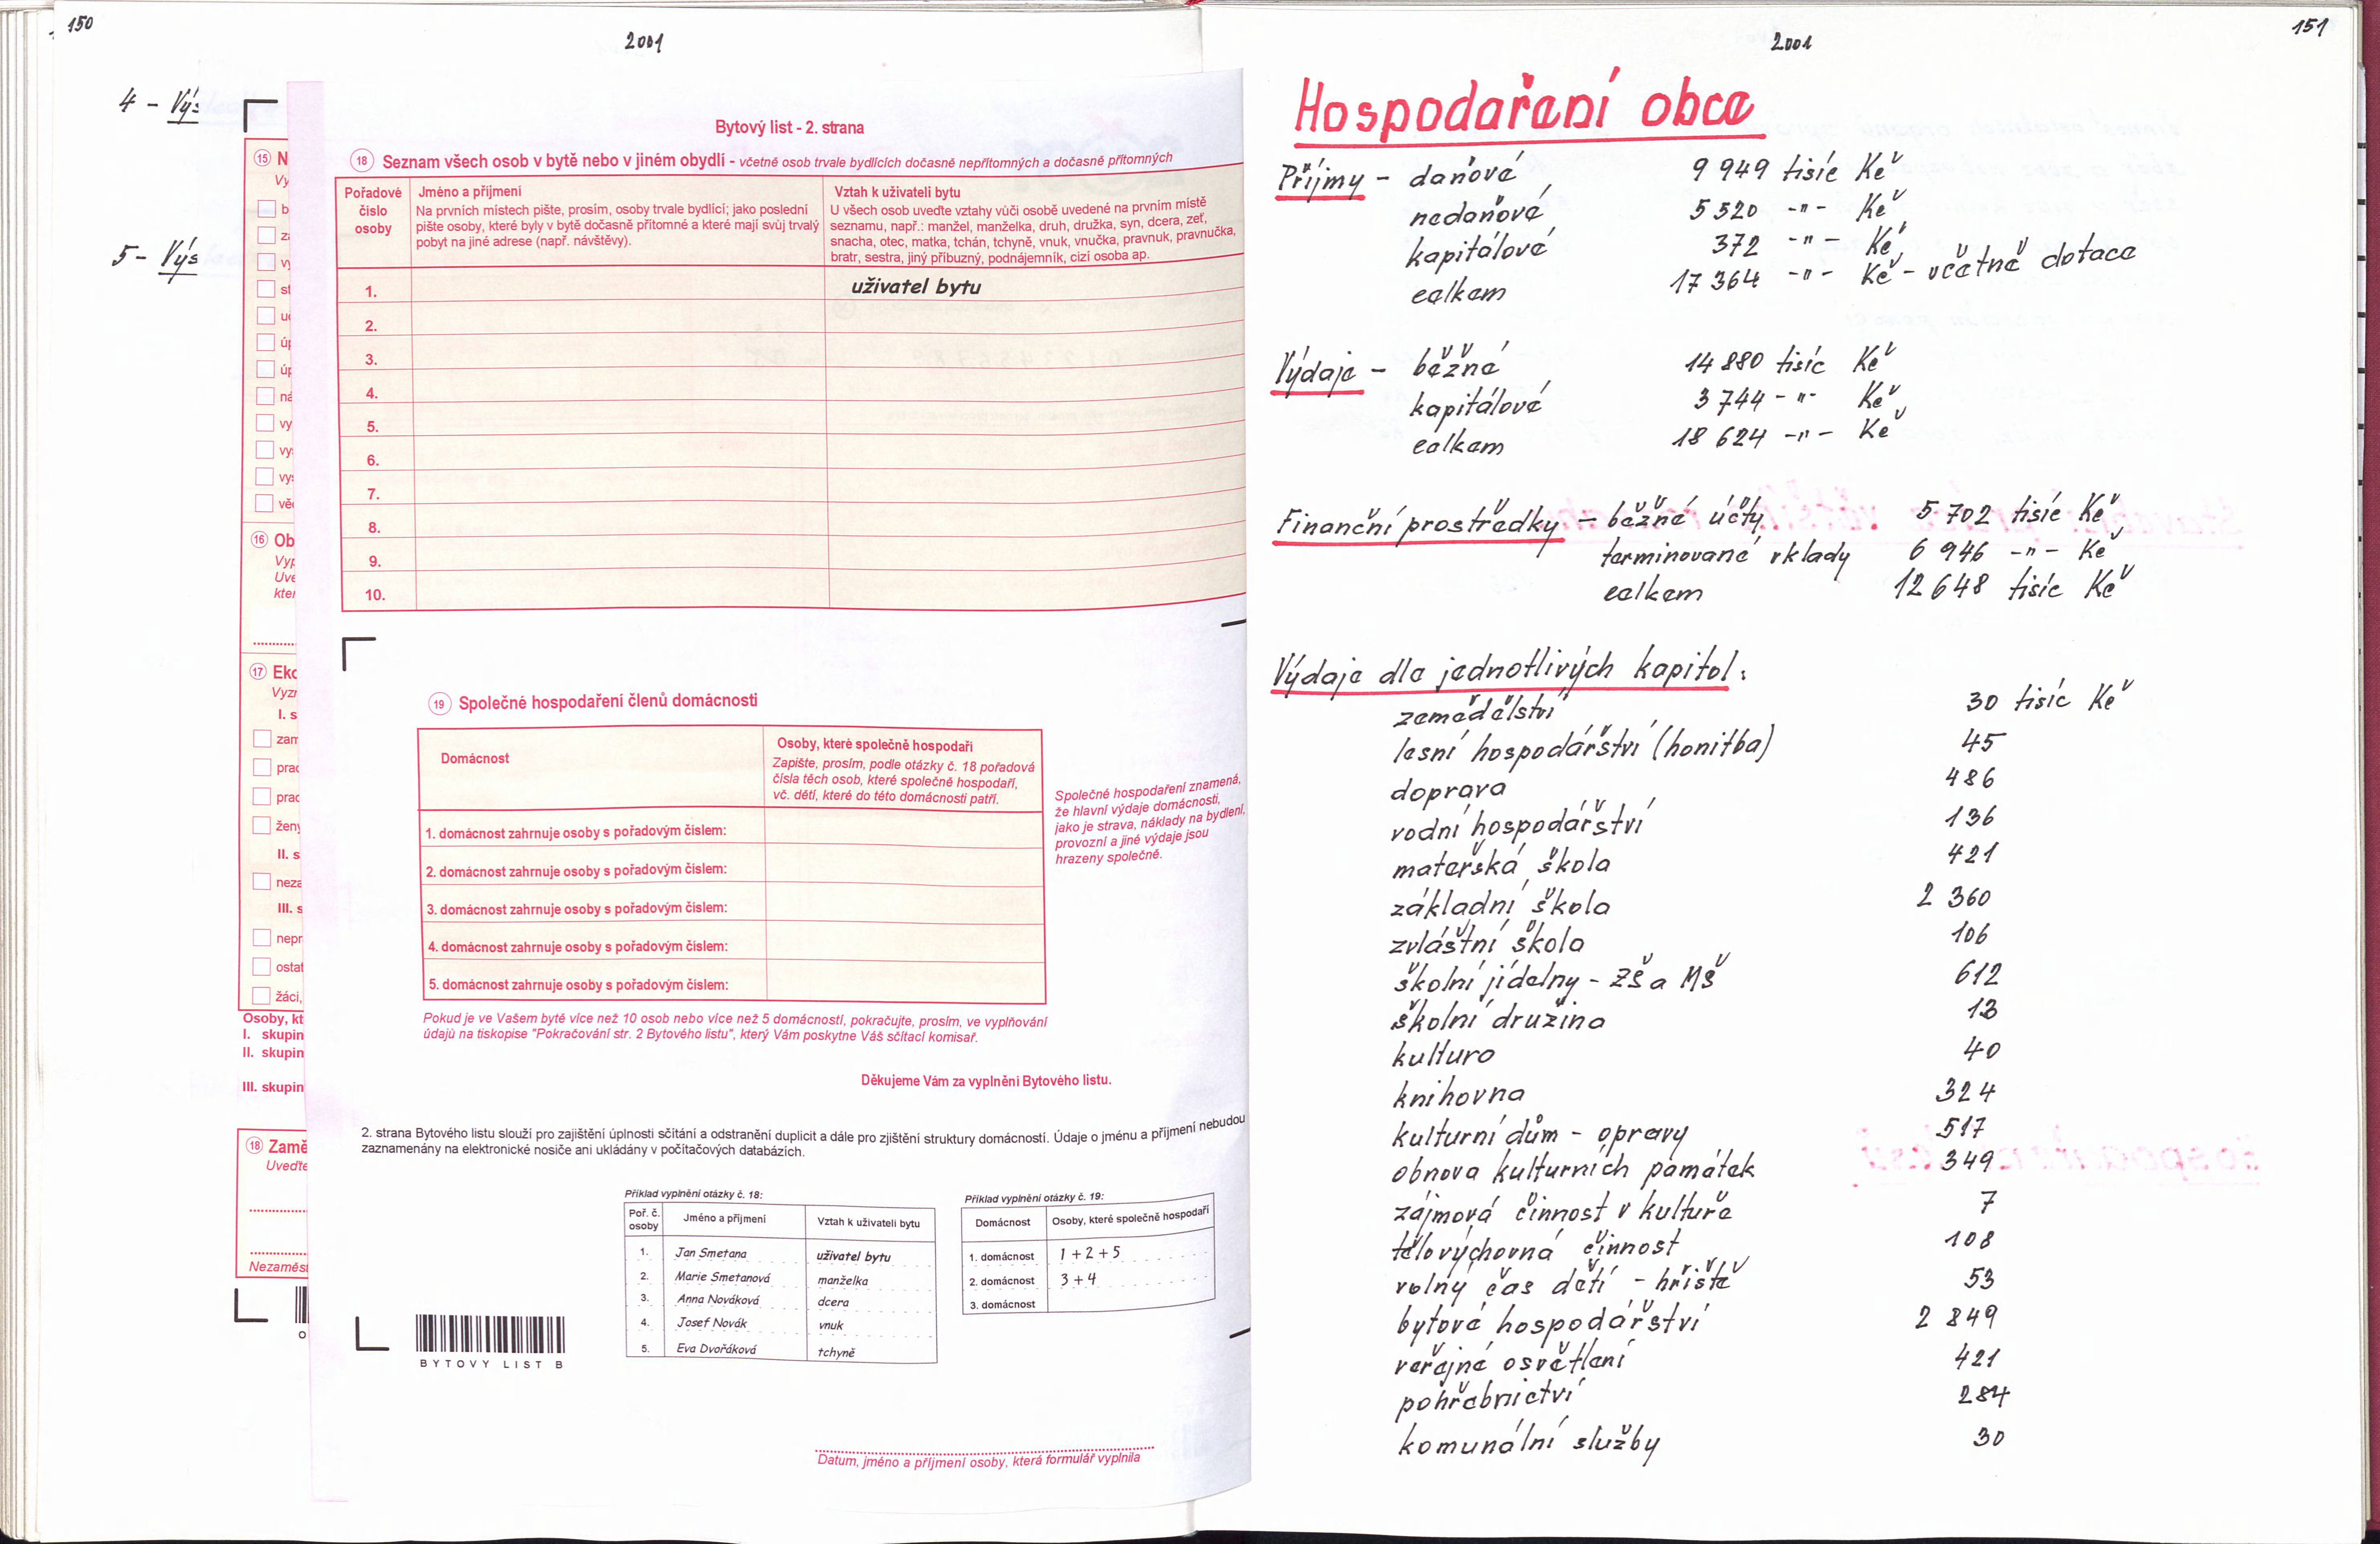 150
2001
4 - Výs
5 - Výs
15 N
Vy
b
za
vy
st
uč
úp
úp
ná
vy
vys
vys
věd
16 Ob
Vyp
Uve
kter
17 Eko
Vyzn
I. s
zam
prac
prac
ženy
II. s
neza
III. s
nepr
ostat
žáci,
Osoby, kt
I. skupin
II. skupin
III. skupin
18 Zamě
Uveďte
Nezaměst
Bytový list - 2. strana
18 Seznam všech osob v bytě nebo v jiném obydlí - včetně osob trvale bydlících dočasně nepřítomných a dočasně přítomných
Pořadové číslo osoby
Jméno a příjmení
Na prvních místech pište, prosím, osoby trvale bydlící; jako poslední
pište osoby, které byly v bytě dočasně přítomné a které mají svůj trvalý
pobyt na jiné adrese (např. návštěvy).
Vztah k uživateli bytu
U všech osob uveďte vztahy vůči osobě uvedené na prvním místě
seznamu, např.: manžel, manželka, druh, družka, syn, dcera, zeť,
snacha, otec, matka, tchán, tchyně, vnuk, vnučka, pravnuk, pravnučka,
bratr, sestra, jiný příbuzný, podnájemník, cizí osoba ap.
1. uživatel bytu
2.
3.
4.
5.
6.
7.
8.
9.
10.
19 Společné hospodaření členů domácnosti
Domácnost
Osoby, které společně hospodaří
Zapište, prosím, podle otázky č. 18 pořadová
čísla těch osob, které společně hospodaří,
vč. dětí, které do této domácnosti patří.
1. domácnost zahrnuje osoby s pořadovým číslem:
2. domácnost zahrnuje osoby s pořadovým číslem:
3. domácnost zahrnuje osoby s pořadovým číslem:
4. domácnost zahrnuje osoby s pořadovým číslem:
5. domácnost zahrnuje osoby s pořadovým číslem:
Společné hospodaření znamená,
že hlavní výdaje domácnosti,
jako je strava, náklady na bydlení,
provozní a jiné výdaje jsou
hrazeny společně.
Pokud je ve Vašem bytě více než 10 osob nebo více než 5 domácností, pokračujte, prosím, ve vyplňování
údajů na tiskopise "Pokračování str. 2 Bytového listu", který Vám poskytne Váš sčítací komisař.
Děkujeme Vám za vyplnění Bytového listu.
2. strana Bytového listu slouží pro zajištění úplnosti sčítání a odstranění duplicit a dále pro zjištění struktury domácností. Údaje o jménu a příjmení nebudou
zaznamenány na elektronické nosiče ani ukládány v počítačových databázích.
Příklad vyplnění otázky č. 18:
Poř. č. osoby Jméno a příjmení Vztah k uživateli bytu
1. Jan Smetana uživatel bytu
2. Marie Smetanová manželka
3. Anna Nováková dcera
4. Josef Novák vnuk
5. Eva Dvořáková tchyně
Příklad vyplnění otázky č. 19:
Domácnost Osoby, které společně hospodaří
1. domácnost 1 + 2 + 5
2. domácnost 3 + 4
3. domácnost
BYTOVY LIST B
Datum, jméno a příjmení osoby, která formulář vyplnila
151
2001
Hospodaření obce
Příjmy - daňové 9 949 tisíc Kč
nedaňové 5 520 -"- Kč
kapitálové 372 -"- Kč
celkem 17 364 -"- Kč - včetně dotace
Výdaje - běžné 14 880 tisíc Kč
kapitálové 3 744 -"- Kč
celkem 18 624 -"- Kč
Finanční prostředky - běžné účty 5 702 tisíc Kč
termínované vklady 6 946 -"- Kč
celkem 12 648 tisíc Kč
Výdaje dle jednotlivých kapitol:
zemědělství 30 tisíc Kč
lesní hospodářství (honitba) 45
doprava 486
vodní hospodářství 136
mateřská škola 421
základní škola 2 360
zvláštní škola 106
školní jídelny - ZŠ a MŠ 612
školní družina 13
kultura 40
knihovna 324
kulturní dům - opravy 517
obnova kulturních památek 349
zájmová činnost v kultuře 7
tělovýchovná činnost 108
volný čas dětí - hřiště 53
bytové hospodářství 2 849
veřejné osvětlení 421
pohřebnictví 284
komunální služby 30